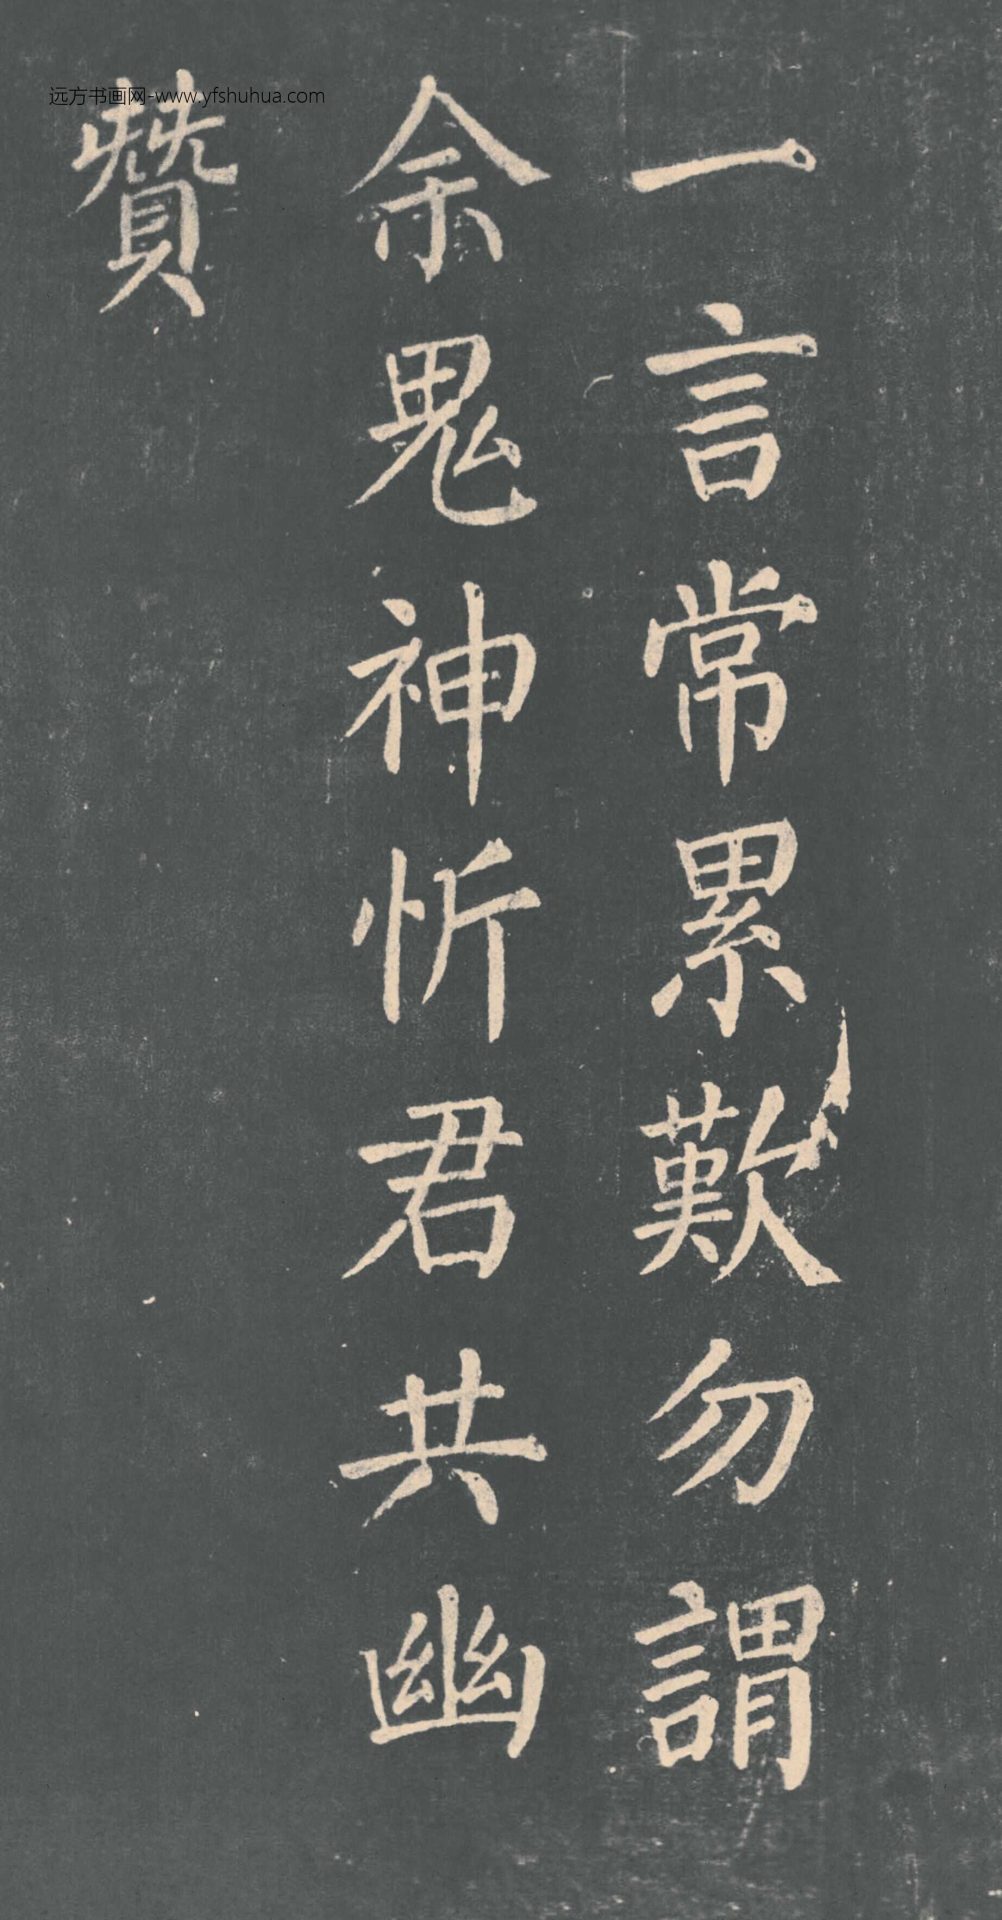 一言常累歎勿謂
余鬼神忻君共幽
贊
远方书画网-www.yfshuhua.com